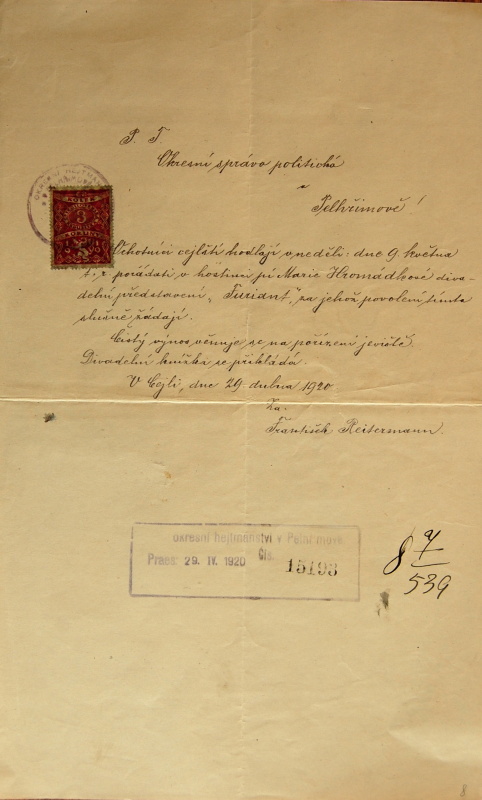 P. T.
Okresní správa politická
v
Pelhřimově!
Ochotníci cejlští hodlají v neděli dne 9. května
t. r. pořádati v hostinci pí Marie Hromádkové diva-
delní představení „Furiant", za jehož povolení tímto
slušně žádají.
Čistý výnos věnuje se na pořízení jeviště.
Divadelní knížka se přikládá.
V Cejli, dne 29 dubna 1920.
Za.
František Reitermann.
3
okresní hejtmanství v Pelhřimově.
Praes: 29. IV. 1920 Čís. 15193
8 7/539
8